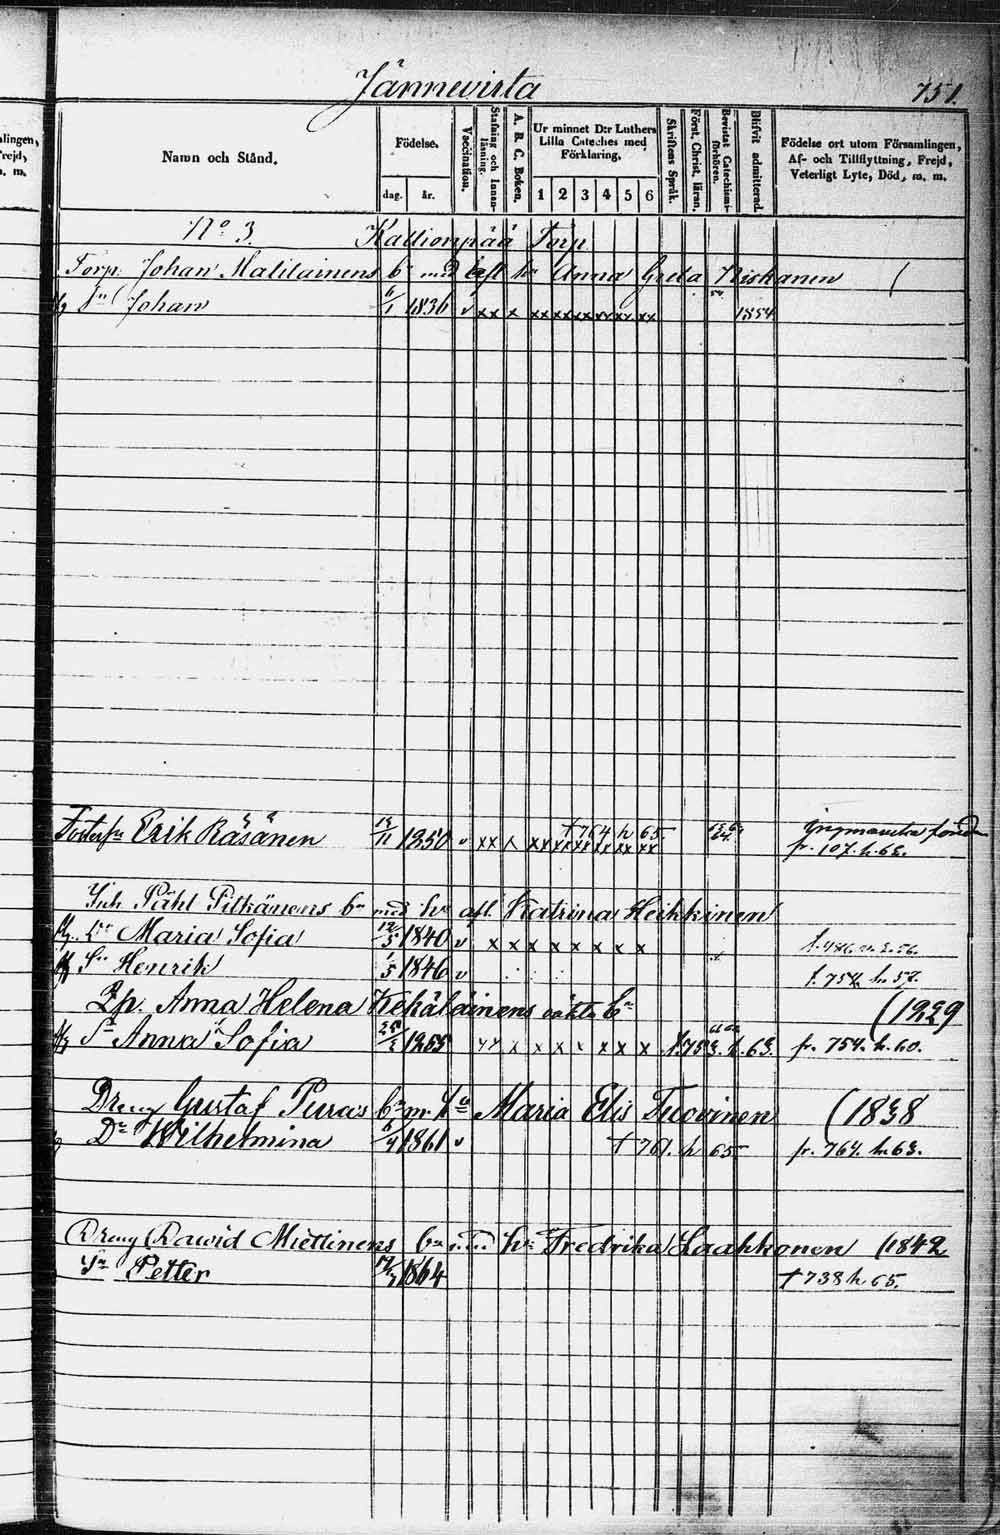 Jännevirta 751.
Namn och Stånd.
Födelse.
dag. år.
Vaccination.
Stafning och Innan-läsning.
A. B. C. Boken.
Ur minnet D:r Luthers Lilla Cateches med Förklaring,
1 2 3 4 5 6
Skriftens Språk.
Först. Christ. läran.
Bevistat Catechismi-förhören.
Blifvit admitterad.
Födelse ort utom Församlingen, Af- och Tillflyttning, Frejd, Veterligt Lyte, Död, m. m.
No 3. Kallionpää Torp
Torp. Johan Malilainens bn med Anna Greta Niskanen
Sn Johan 6/1 1836 v xx x xx xx xx xx xx xx 1854
Erik Räsänen 1850 v xx x † 764 h 65. fr. 107. h. 63.
Inh. Påhl Pitkänens bn med hu afl. Katrina Heikkinen
Dr Maria Sofia 12/5 1840 v x x x x x x x x
Sn Henrik 1/5 1846 v f. 754. h. 57.
Anna Helena Kekäläinens oäkta bn (1229
Anna Sofia 1855 x x x x x x x 63. fr. 754. h. 60.
Dreng Gustaf Puras bn m. hu Maria Elis Tuovinen (1838
Dr Wilhelmina 6/4 1861 v † 761. h 65 fr. 764. h. 63.
Dreng Dawid Miettinens bn med hu Fredrika Laakkonen (1842
Sn Petter 1864 † 738 h. 65.